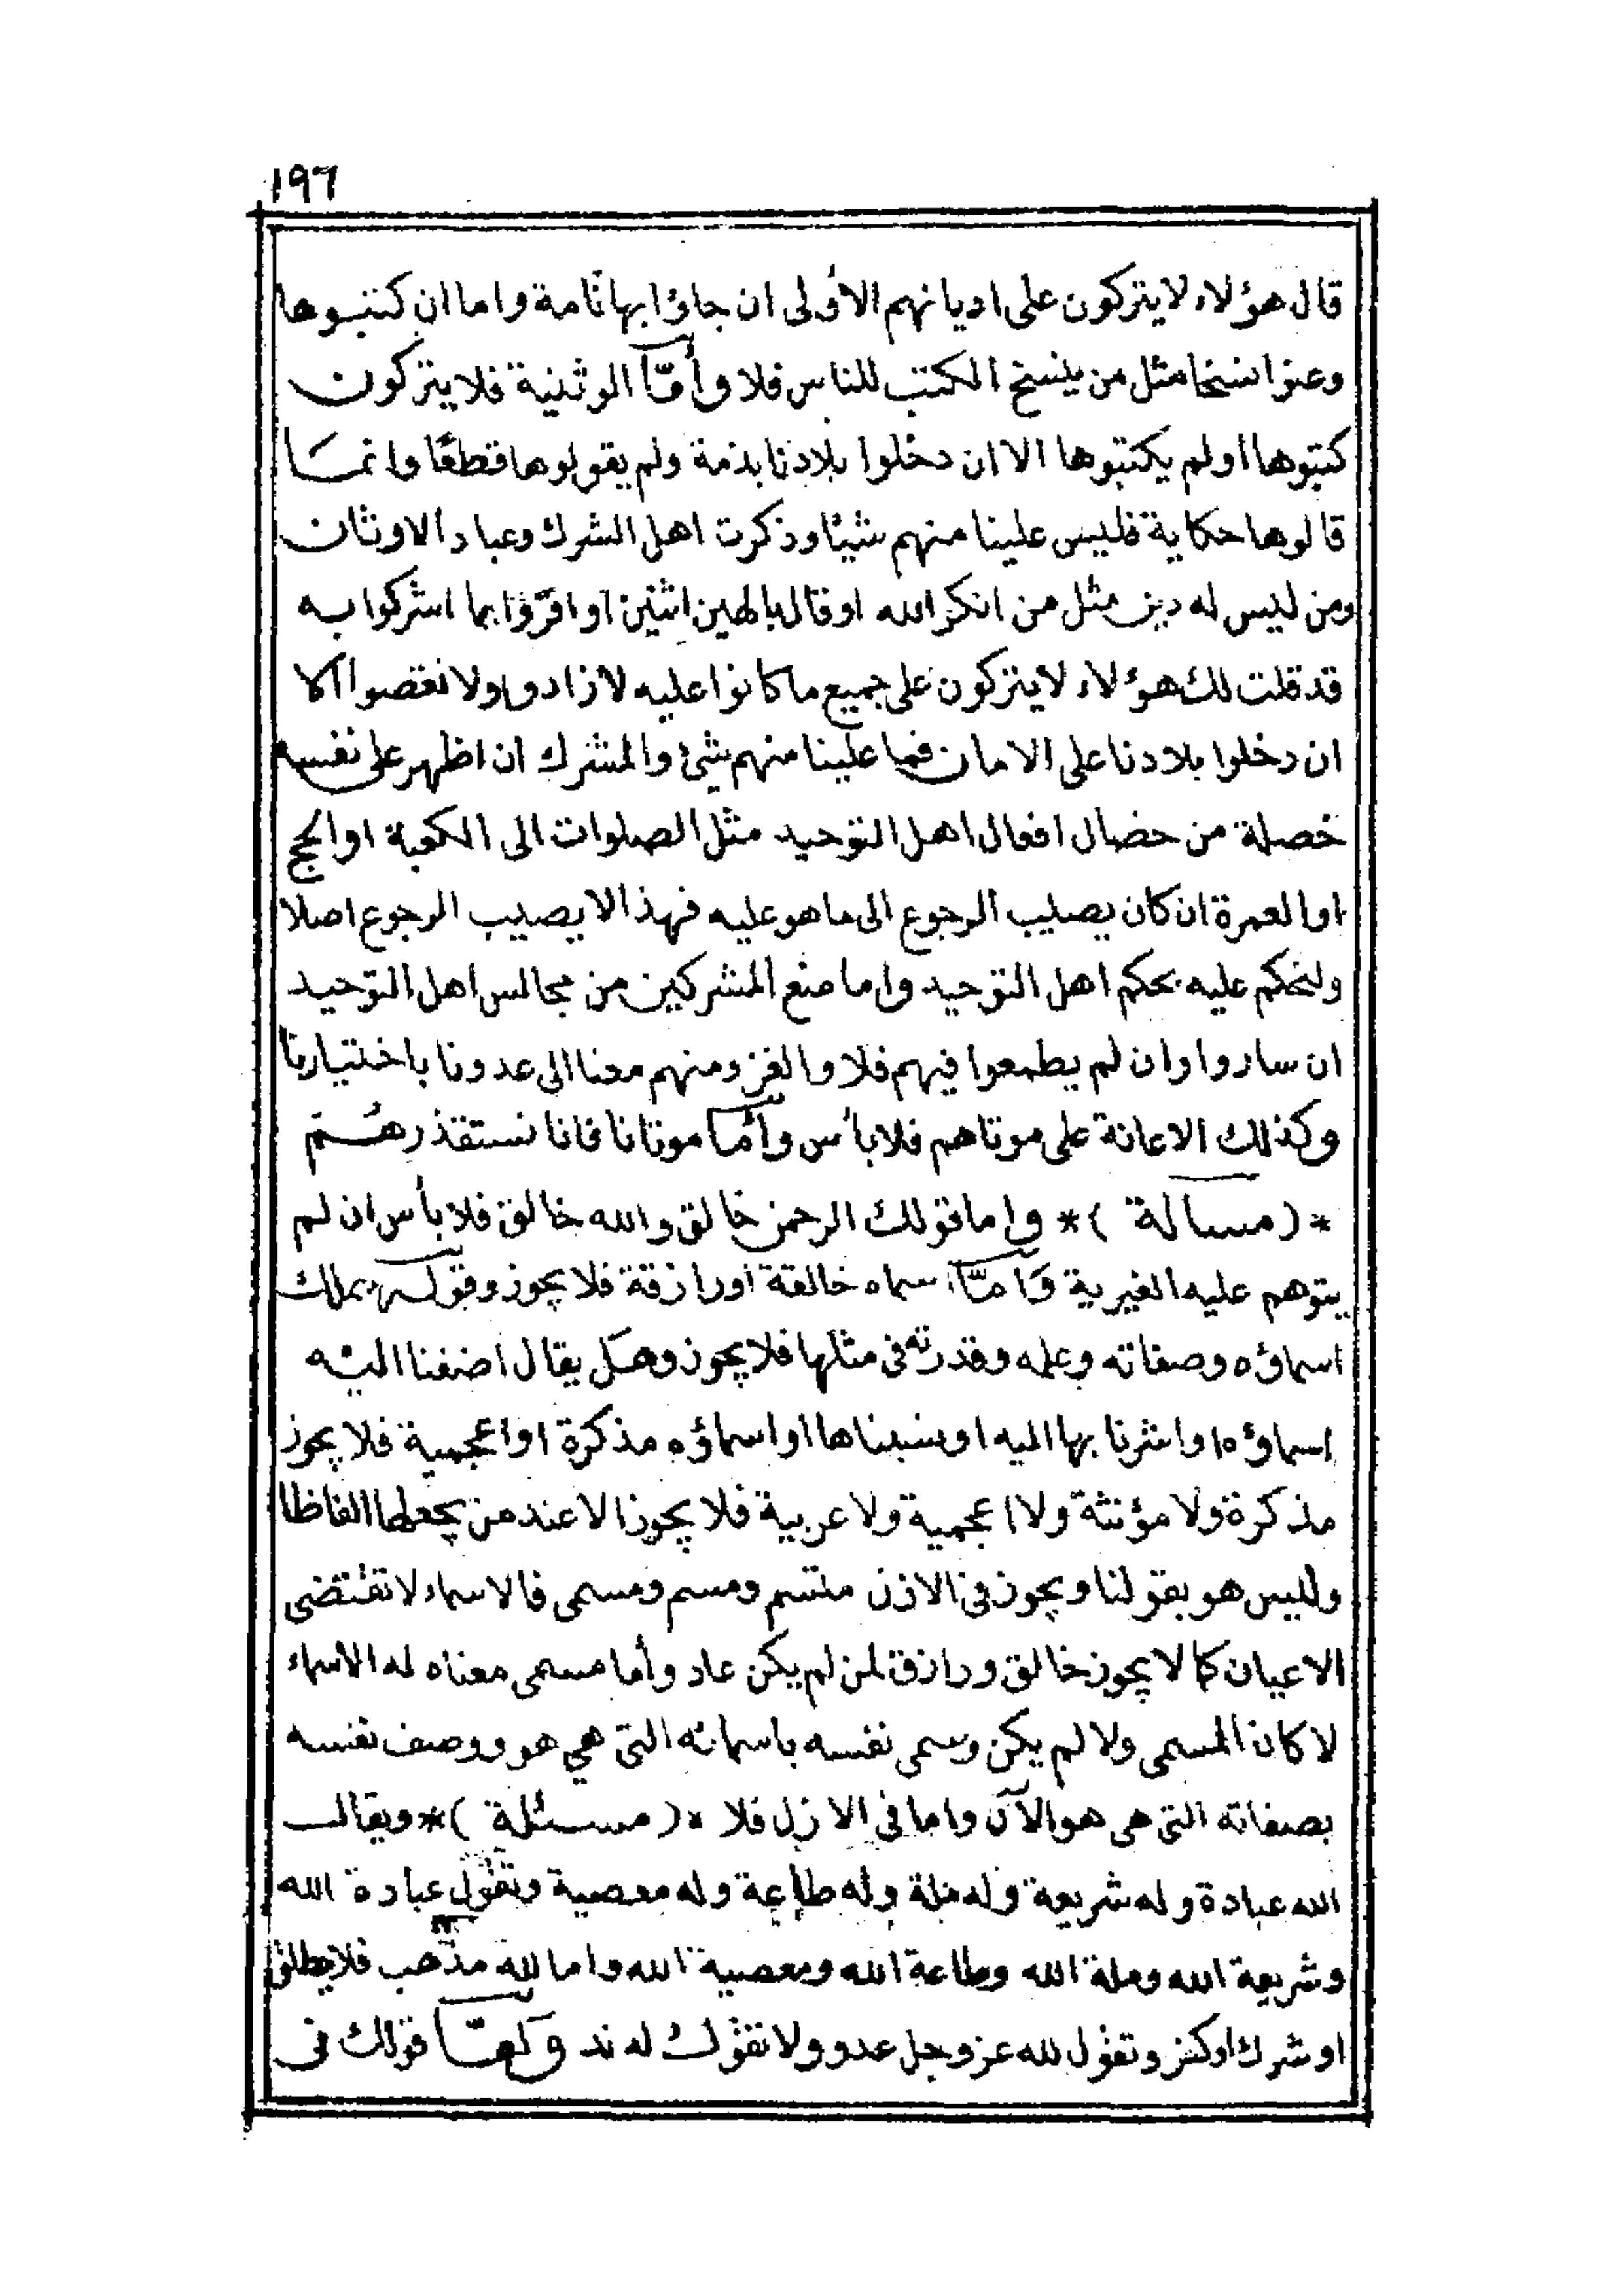 ١٩٦
قال هؤلاء لا يتركون على اديانهم الأولى ان جاؤا بها تامة واما ان كتبوها
وعنوا نسخا مثل من ينسخ الكتب للناس فلا وأمّا الوثنية فلا يتركون
كتبوها او لم يكتبوها الا ان دخلوا بلادنا بذمة ولم يقولوها قطعًا وانما
قالوها حكاية فليس علينا منهم شيئا وذكرت اهل الشرك وعباد الاوثان
ومن ليس له دين مثل من انكر الله او قال بالهين اثنين او اقرّوا بما اشركوا به
قد قلت لك هؤلاء لا يتركون على جميع ما كانوا عليه لا زادوا ولا نقصوا الا
ان دخلوا بلادنا على الامان فما علينا منهم شئ والمشرك ان اظهر على نفسه
خصلة من خصال افعال اهل التوحيد مثل الصلوات الى الكعبة او الحج
او العمرة ان كان يصيب الرجوع الى ما هو عليه فهذا لا يصيب الرجوع اصلا
ولنحكم عليه بحكم اهل التوحيد واما منع المشركين من مجالس اهل التوحيد
ان ساروا وان لم يطمعوا فيهم فلا والغزو منهم معنا الى عدونا باختيارنا
وكذلك الاعانة على موتاهم فلا بأس وأمّا موتانا فانا نستقذرهم
*( مسالة )* واما قولك الرحمن خالق والله خالق فلا بأس ان لم
يتوهم عليه الغيرية وَامّا اسماه خالقة أو رازقة فلا يجوز وقوله يملك
اسماؤه وصفاته وعلمه وقدرته فى مثلها فلا يجوز وهل يقال اضفنا اليه
اسماؤه او اشرنا بها اليه او نسبناها او اسماؤه مذكرة او اعجمية فلا يجوز
مذكرة ولا مؤنثة ولا اعجمية ولا عربية فلا يجوز الا عند من يجعلها الفاظا
وليس هو بقولنا ويجوز فى الازل متسم ومسم ومسمى فالاسماء لا تقتضى
الاعيان كما لا يجوز خالق ورازق لمن لم يكن عاد وأما مسمى معناه له الاسماء
لا كان المسمى ولا لم يكن وسمى نفسه باسمائه التى هي هو ووصف نفسه
بصفاته التى هى هو الآن واما فى الازل فلا *( مسئلة )* ويقال
الله عبادة وله شريعة وله ملة وله طاعة وله معصية وتقول عبادة الله
وشريعة الله وملة الله وطاعة الله ومعصية الله واما لله مذهب فلا يطلق
او شرك او كفر وتقول لله عز وجل عدو ولا تقول له ند وَامّا قولك فى